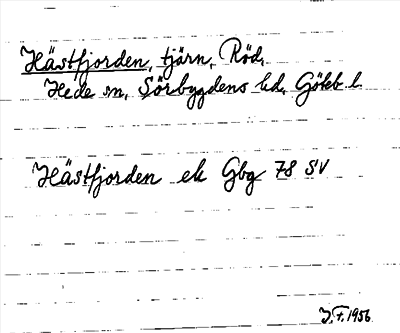 Hästfjorden, tjärn, Röd,
Hede sn, Sörbygdens hd, Göteb l.
Hästfjorden ek Gbg 78 SV
J.F. 1956.